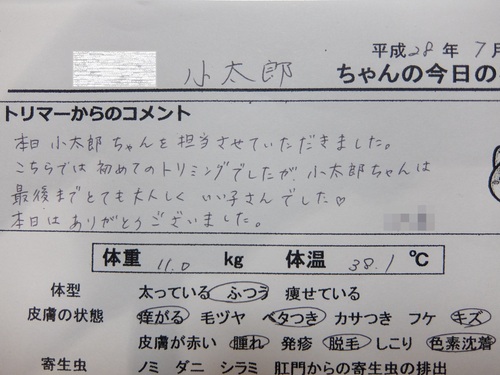 平成28年7月
小太郎 ちゃんの今日の
トリマーからのコメント
本日 小太郎ちゃんを担当させていただきました。
こちらでは初めてのトリミングでしたが 小太郎ちゃんは
最後までとても大人しく いい子さんでした♡
本日は ありがとうございました。
体重 11.0 kg 体温 38.1 ℃
体型 太っている ふつう 痩せている
皮膚の状態 痒がる 毛ヅヤ ベタつき カサつき フケ キズ
皮膚が赤い 腫れ 発疹 脱毛 しこり 色素沈着
寄生虫 ノミ ダニ シラミ 肛門からの寄生虫の排出